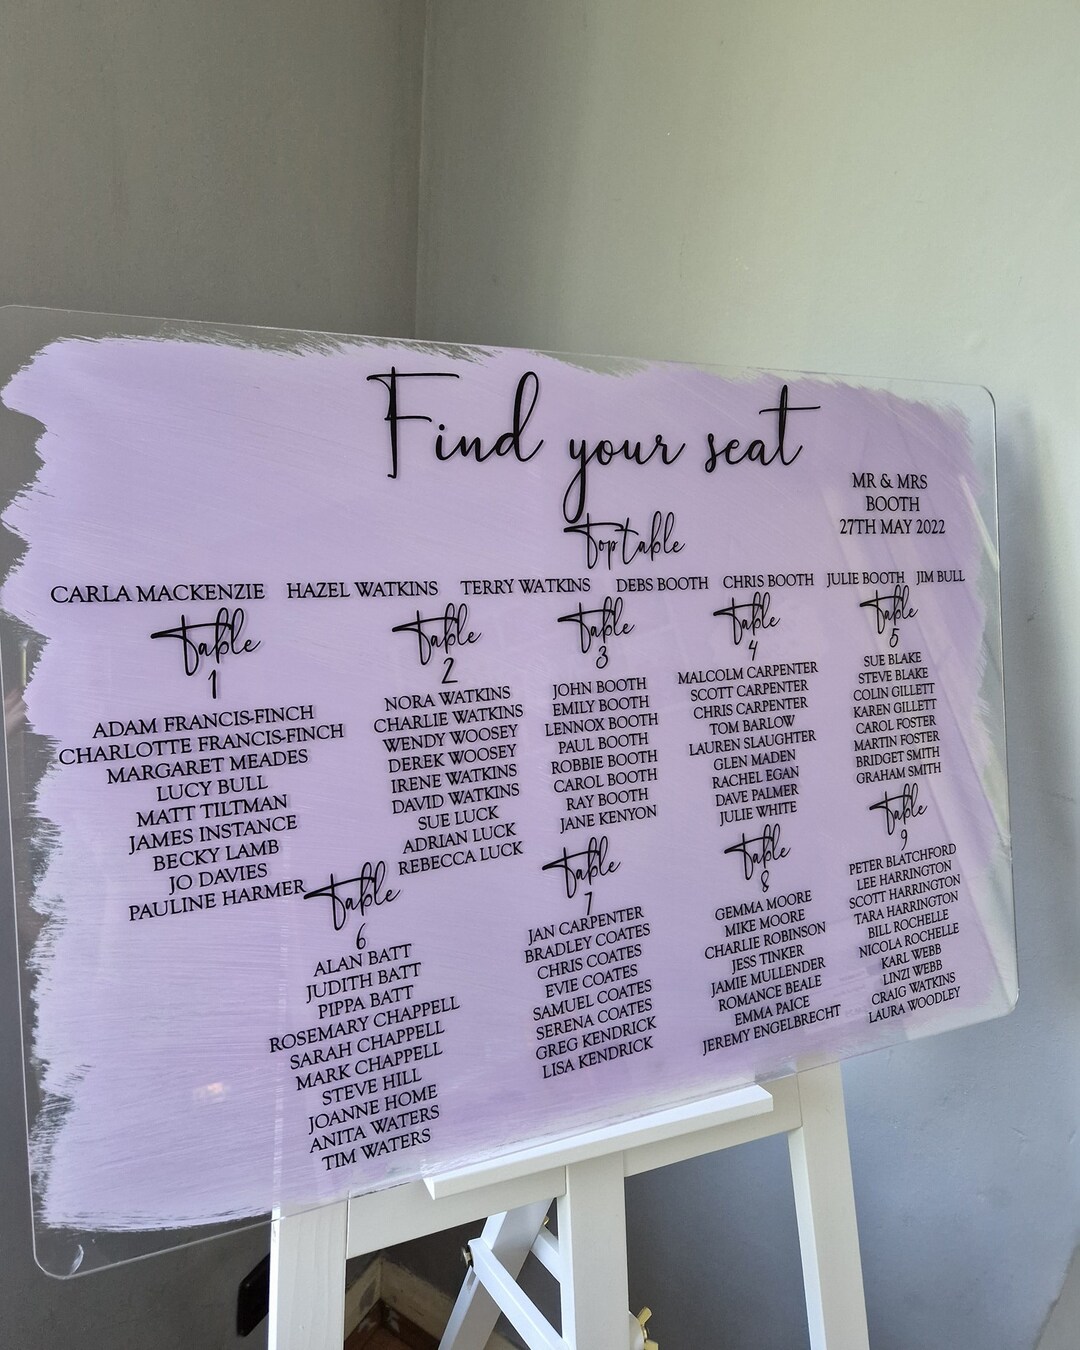 Find your seat
MR & MRS
BOOTH
27TH MAY 2022
Top table
CARLA MACKENZIE HAZEL WATKINS TERRY WATKINS DEBS BOOTH CHRIS BOOTH JULIE BOOTH JIM BULL
Table
1
ADAM FRANCIS-FINCH
CHARLOTTE FRANCIS-FINCH
MARGARET MEADES
LUCY BULL
MATT TILTMAN
JAMES INSTANCE
BECKY LAMB
JO DAVIES
PAULINE HARMER
Table
2
NORA WATKINS
CHARLIE WATKINS
WENDY WOOSEY
DEREK WOOSEY
IRENE WATKINS
DAVID WATKINS
SUE LUCK
ADRIAN LUCK
REBECCA LUCK
Table
3
JOHN BOOTH
EMILY BOOTH
LENNOX BOOTH
PAUL BOOTH
ROBBIE BOOTH
CAROL BOOTH
RAY BOOTH
JANE KENYON
Table
4
MALCOLM CARPENTER
SCOTT CARPENTER
CHRIS CARPENTER
TOM BARLOW
LAUREN SLAUGHTER
GLEN MADEN
RACHEL EGAN
DAVE PALMER
JULIE WHITE
Table
5
SUE BLAKE
STEVE BLAKE
COLIN GILLETT
KAREN GILLETT
CAROL FOSTER
MARTIN FOSTER
BRIDGET SMITH
GRAHAM SMITH
Table
6
ALAN BATT
JUDITH BATT
PIPPA BATT
ROSEMARY CHAPPELL
SARAH CHAPPELL
MARK CHAPPELL
STEVE HILL
JOANNE HOME
ANITA WATERS
TIM WATERS
Table
7
JAN CARPENTER
BRADLEY COATES
CHRIS COATES
EVIE COATES
SAMUEL COATES
SERENA COATES
GREG KENDRICK
LISA KENDRICK
Table
8
GEMMA MOORE
MIKE MOORE
CHARLIE ROBINSON
JESS TINKER
JAMIE MULLENDER
ROMANCE BEALE
EMMA PAICE
JEREMY ENGELBRECHT
Table
9
PETER BLATCHFORD
LEE HARRINGTON
SCOTT HARRINGTON
TARA HARRINGTON
BILL ROCHELLE
NICOLA ROCHELLE
KARL WEBB
LINZI WEBB
CRAIG WATKINS
LAURA WOODLEY